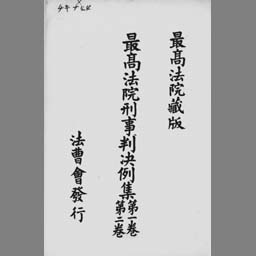 最高法院藏版
最高法院刑事判決例集第一卷
第二卷
法曹會發行